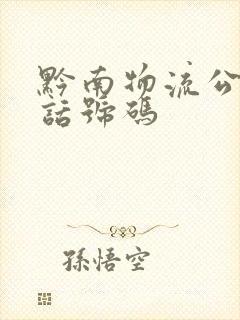 黔南物流公
話號碼
孫悟空